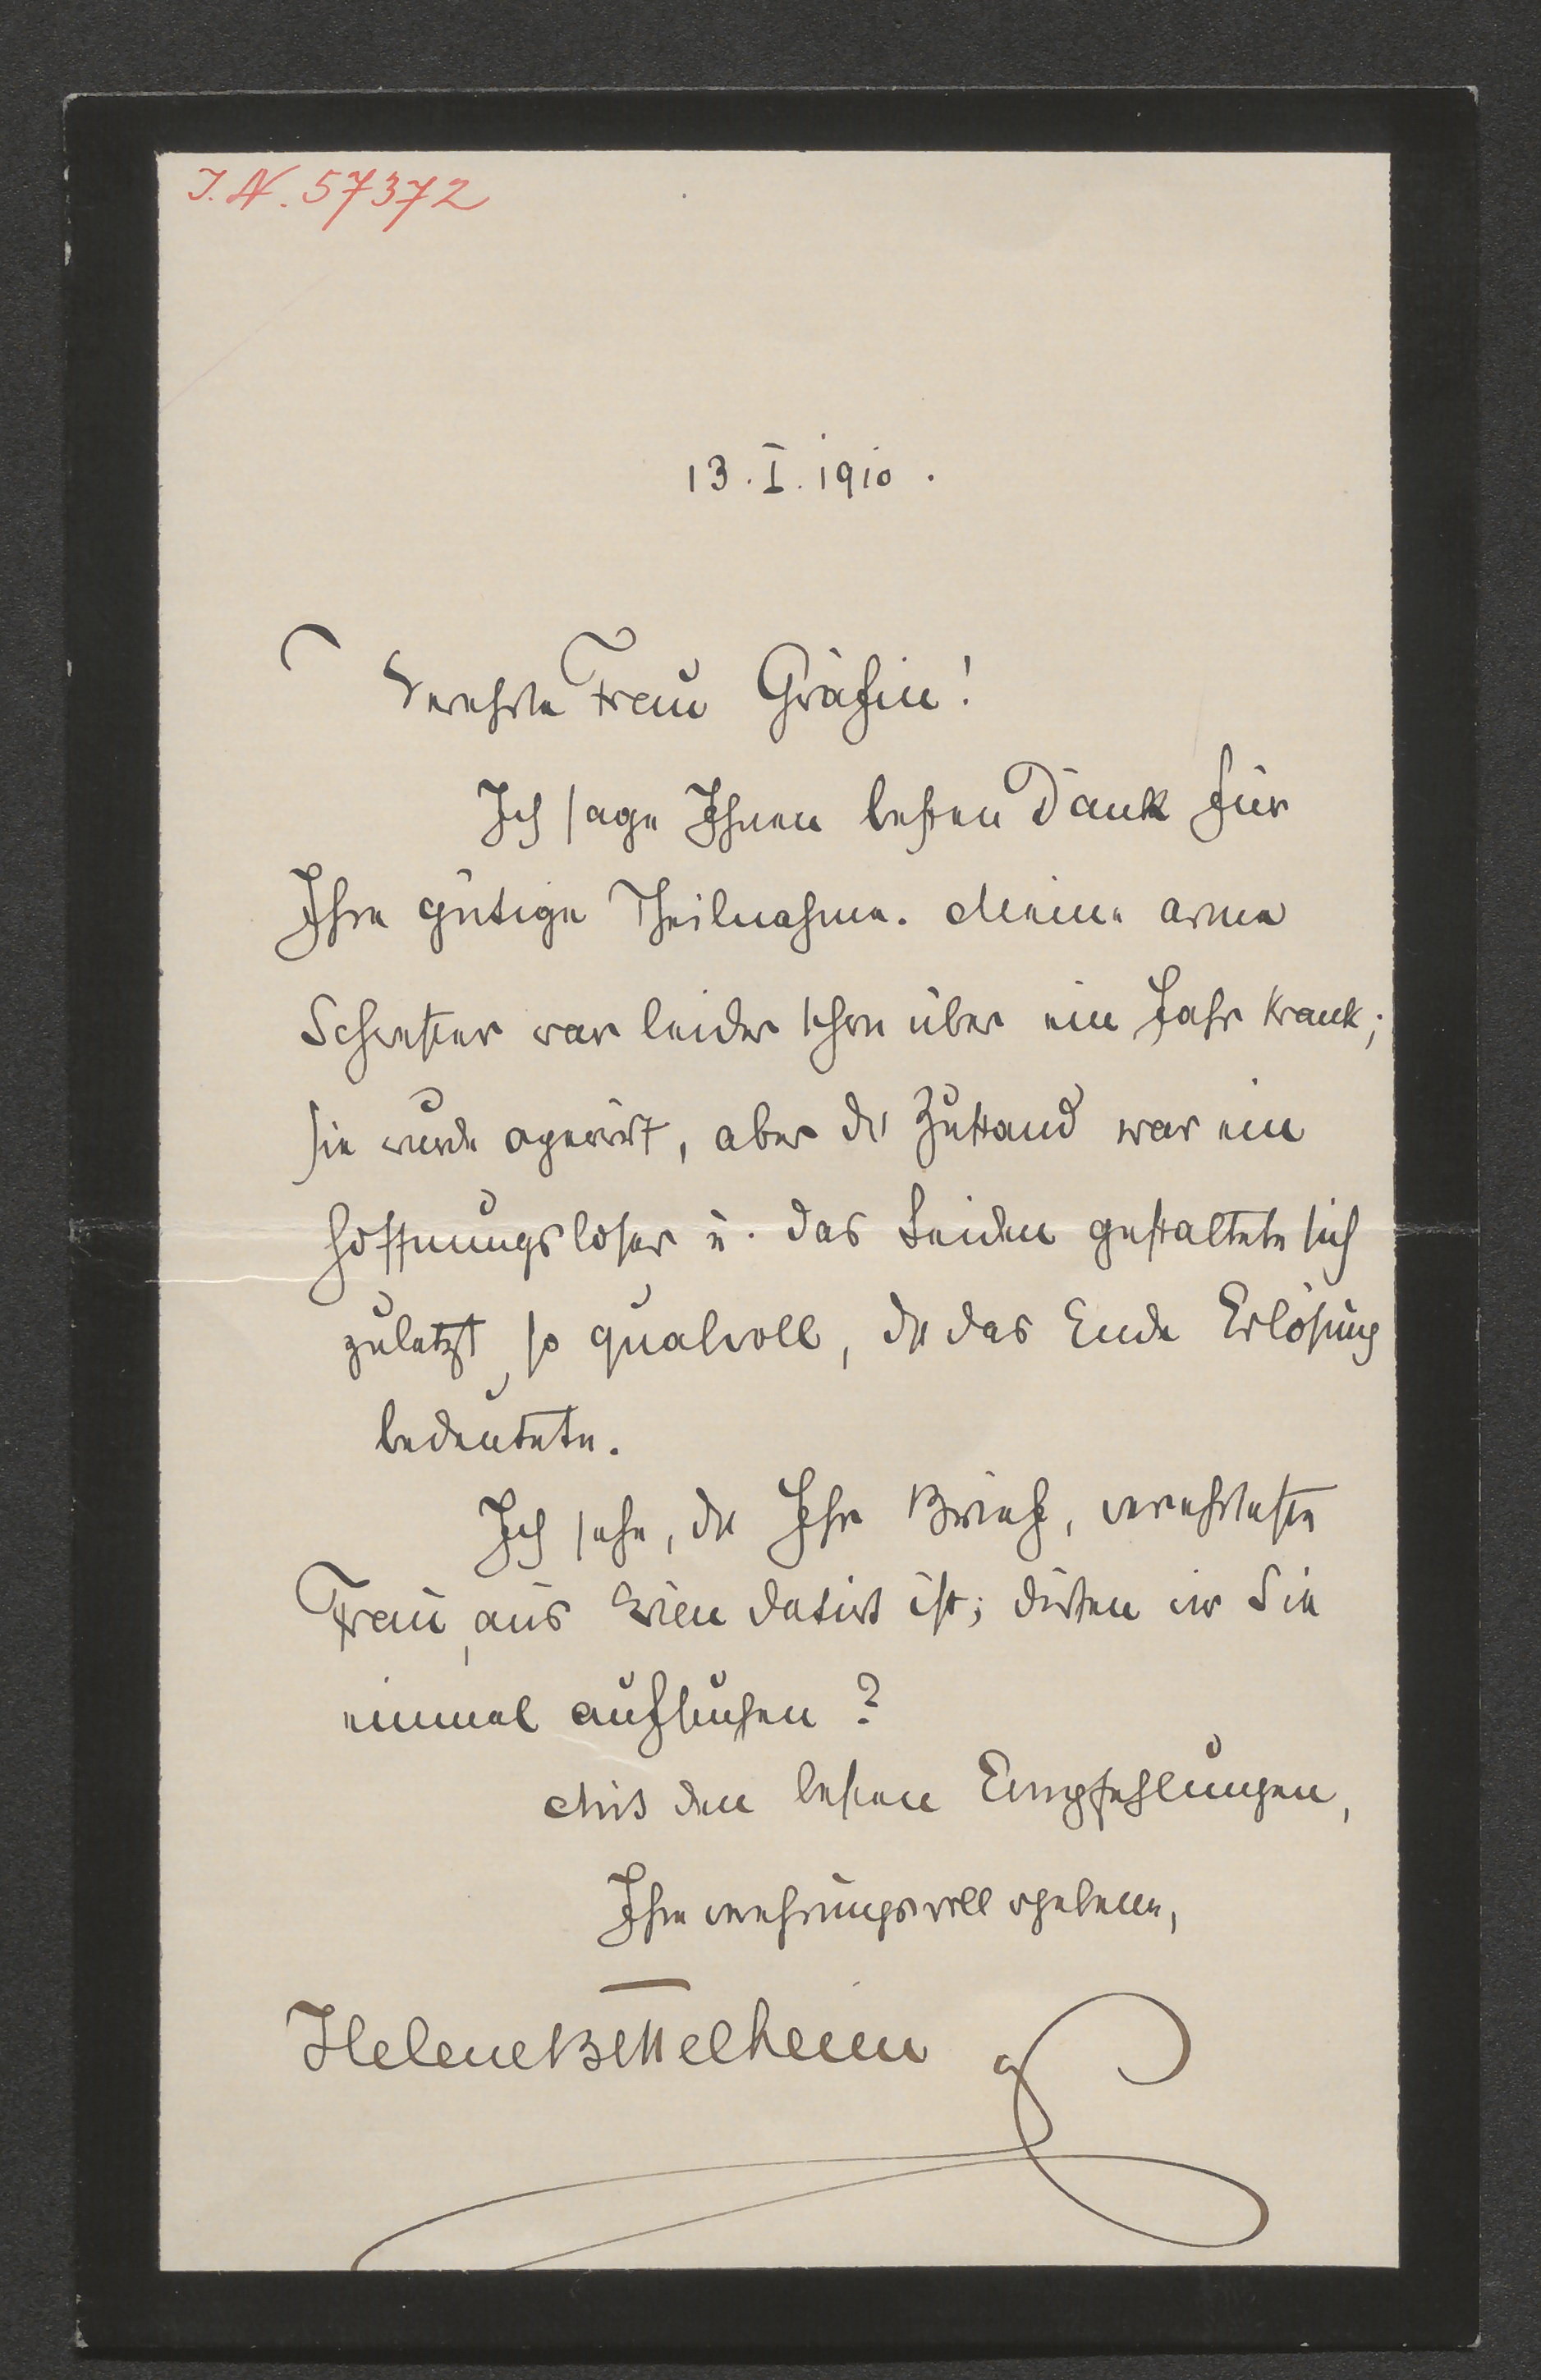 J. N. 57372
13. I. 1910.
Verehrte Frau Gräfin!
Ich sage Ihnen besten Dank für
Ihre gütige Theilnahme. Meine arme
Schwester war leider schon über ein Jahr krank;
sie wurde operirt, aber der Zustand war ein
hoffnungsloser u. das Leiden gestaltete sich
zuletzt so qualvoll, dß das Ende Erlösung
bedeutete.
Ich sehe, dß Ihr Brief, verehrteste
Frau, aus Wien datirt ist; dürfen wir Sie
einmal aufsuchen?
Mit den besten Empfehlungen,
Ihre verehrungsvoll ergebene,
Helene Bettelheim